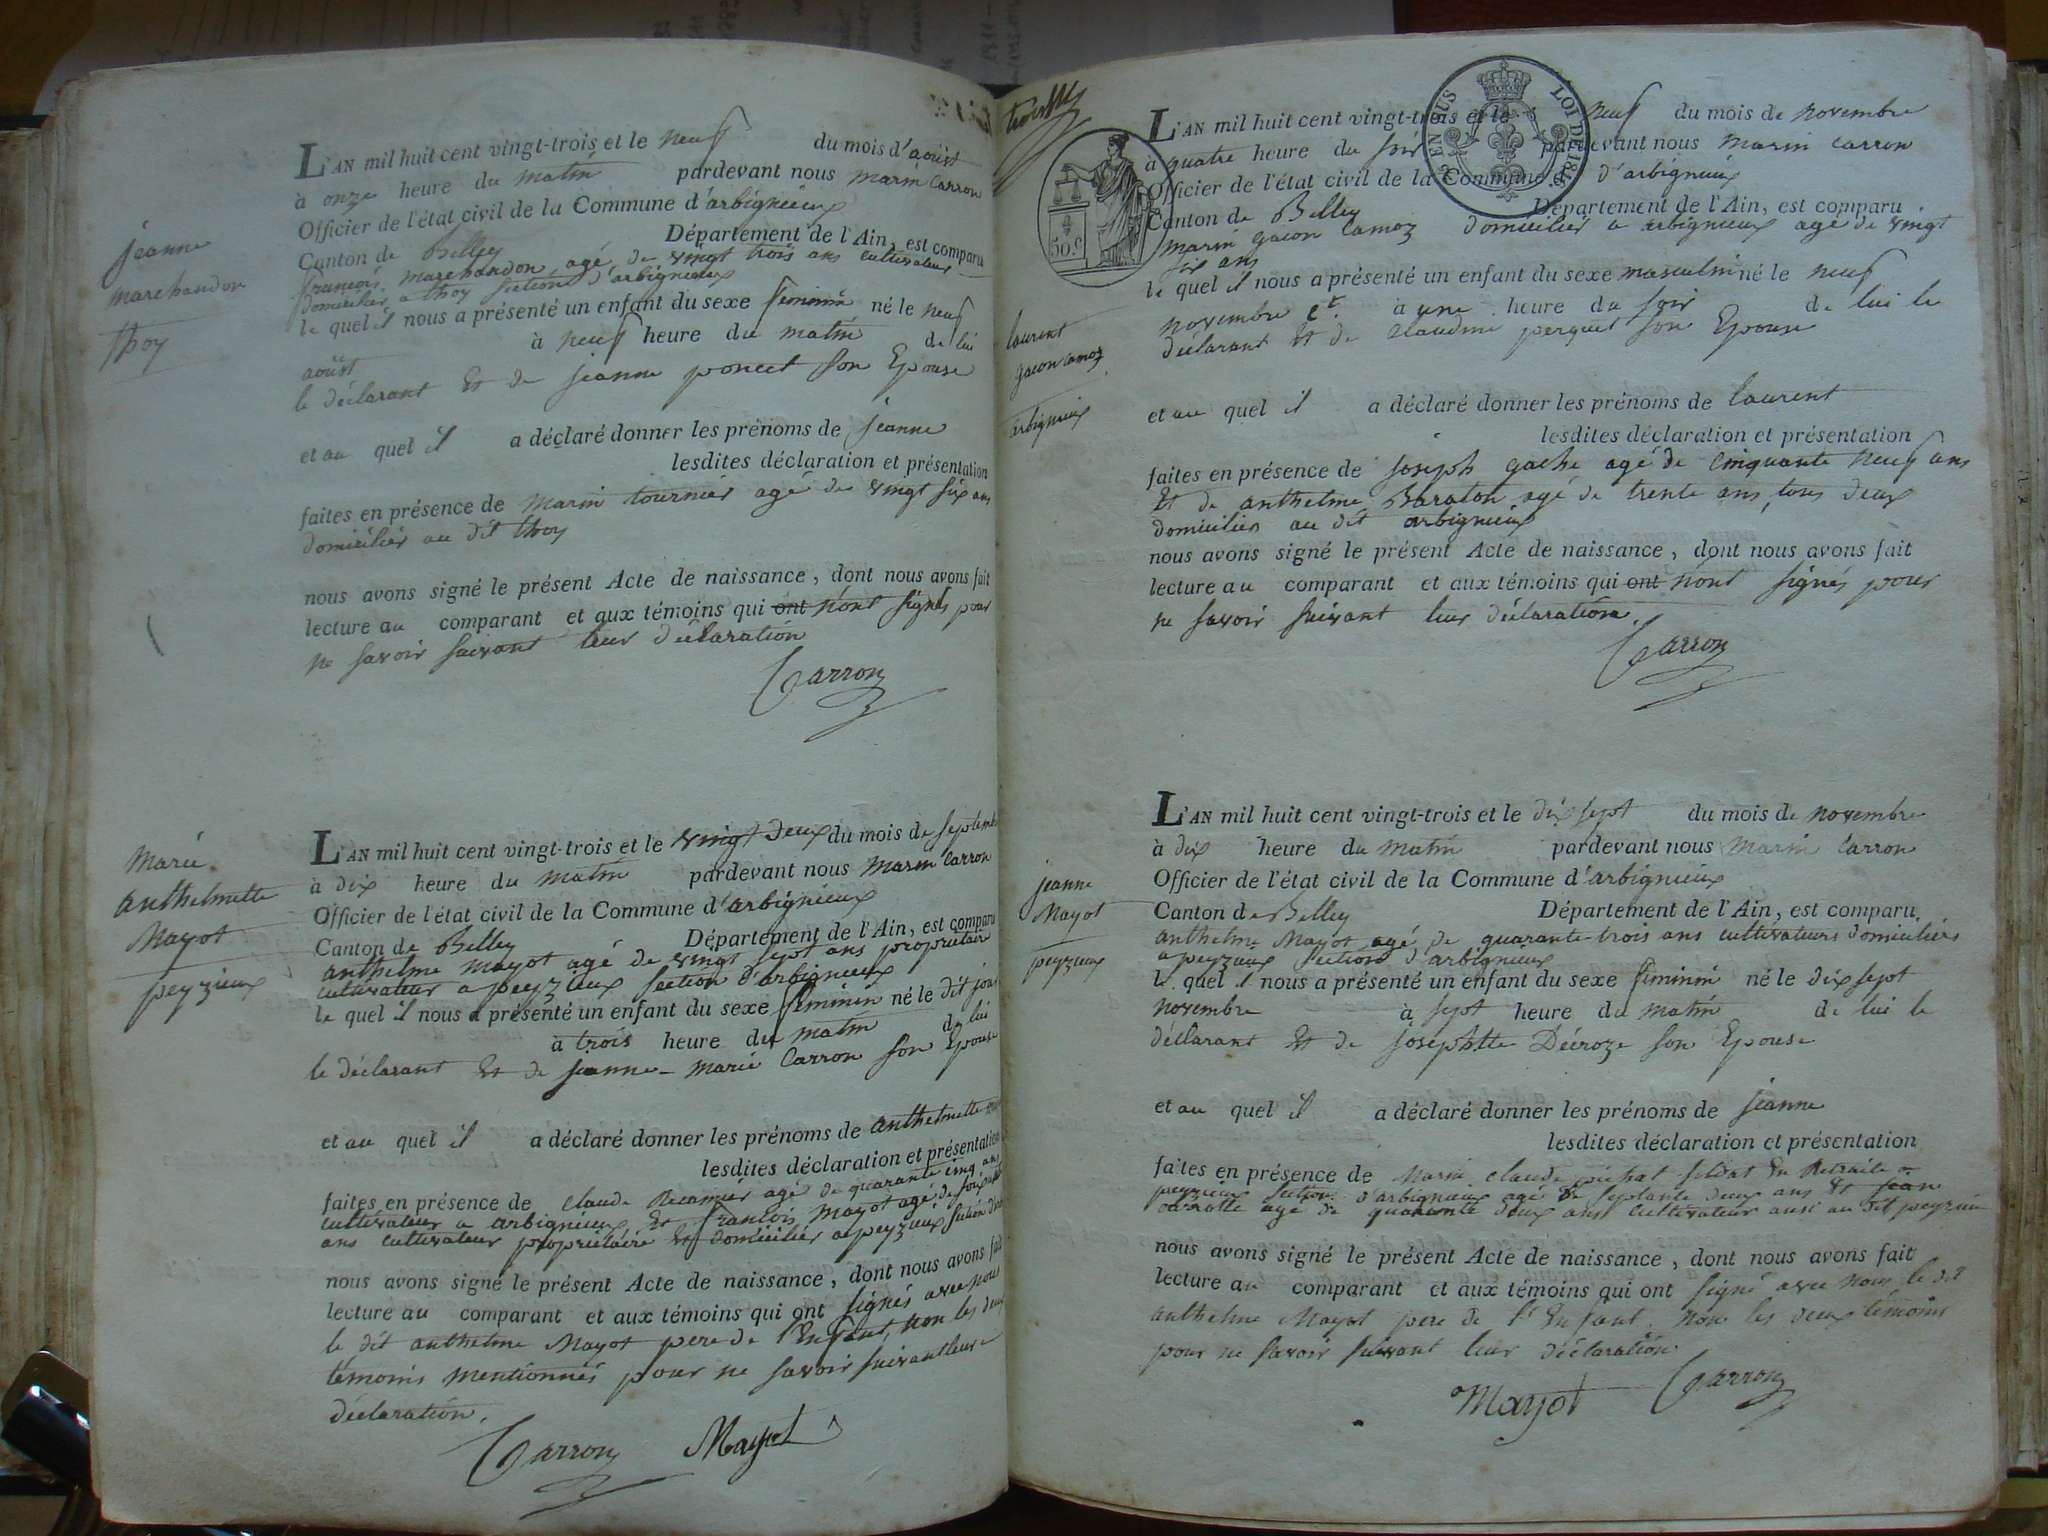 jeanne
marchandon
thoy
L'AN mil huit cent vingt-trois et le neuf du mois d'aoüst
à onze heure du matin pardevant nous marin Carron
Officier de l'état civil de la Commune d'arbignieux
Canton de Belley Département de l'Ain, est comparu
françois marchandon agé de vingt trois ans cultivateur
domicilié a thoy section d'arbignieux
le quel il nous a présenté un enfant du sexe feminin né le neuf
aoüst à neuf heure du matin de lui
le déclarant Et de jeanne poncet son Epouse
et au quel il a déclaré donner les prénoms de jeanne
lesdites déclaration et présentation
faites en présence de marin tournier agé de vingt six ans
domicilier au dit thoy
nous avons signé le présent Acte de naissance, dont nous avons fait
lecture au comparant et aux témoins qui ont n'ont signés pour
ne savoir suivant leur déclaration
Carron
Marie
anthelmette
Mayot
peyzieux
L'AN mil huit cent vingt-trois et le vingt deux du mois de septembre
à dix heure du matin pardevant nous marin Carron
Officier de l'état civil de la Commune d'arbignieux
Canton de Belley Département de l'Ain, est comparu
anthelme mayot agé de vingt sept ans propriétaire
cultivateur a peyzieux section d'arbignieux
le quel il nous a présenté un enfant du sexe feminin né le dit jour
à trois heure du matin de lui
le déclarant Et de jeanne-marie Carron son Epouse
et au quel il a déclaré donner les prénoms de anthelmette
lesdites déclaration et présentation
faites en présence de claude Recamier agé de quarante cinq ans
cultivateur a arbignieux Et françois mayot agé de
ans cultivateur propriétaire Et domicilier a peyzieu section
nous avons signé le présent Acte de naissance, dont nous avons fait
lecture au comparant et aux témoins qui ont signés avec nous
le dit anthelme Mayot pere de l'Enfant, non les deux
témoins mentionnés pour ne savoir suivant leur
déclaration.
Carron Mayot
SEN SUS LOI DE 1816
50.c
laurent
gacon camoz
arbignieux
L'AN mil huit cent vingt-trois et le neuf du mois de novembre
à quatre heure du soir pardevant nous marin carron
Officier de l'état civil de la Commune d'arbignieux
Canton de Belley Département de l'Ain, est comparu
marin gacon camoz domicilier a arbignieux agé de vingt
six ans
le quel il nous a présenté un enfant du sexe masculin né le neuf
novembre ct. à une heure du soir de lui le
déclarant Et de claudine perquet son Epouse
et au quel il a déclaré donner les prénoms de laurent
lesdites déclaration et présentation
faites en présence de joseph gache agé de cinquante neuf ans
Et de anthelme Baraton agé de trente ans, tous deux
domiciliés au dit arbignieux
nous avons signé le présent Acte de naissance, dont nous avons fait
lecture au comparant et aux témoins qui ont n'ont signés pour
ne savoir suivant leur déclaration.
Carron
jeanne
Mayot
peyzieux
L'AN mil huit cent vingt-trois et le dix sept du mois de novembre
à dix heure du matin pardevant nous Marin Carron
Officier de l'état civil de la Commune d'arbignieux
Canton de Belley Département de l'Ain, est comparu
anthelme Mayot agé de quarante-trois ans cultivateurs domiciliés
a peyzieux section d'arbignieux
le quel il nous a présenté un enfant du sexe feminin né le dix sept
novembre à sept heure du matin de lui le
déclarant Et de josephtte Décroze son Epouse
et au quel il a déclaré donner les prénoms de jeanne
lesdites déclaration et présentation
faites en présence de Marin claude michat soldat En Retraite a
peyzieux section d'arbignieux agé de septante deux ans Et jean
carrotte agé de quarante deux ans cultivateur aussi au dit peyzieu
nous avons signé le présent Acte de naissance, dont nous avons fait
lecture au comparant et aux témoins qui ont signé avec nous le dit
anthelme Mayot pere de l'Enfant. non les deux témoins
pour ne savoir suivant leur déclaration
Mayot Carron